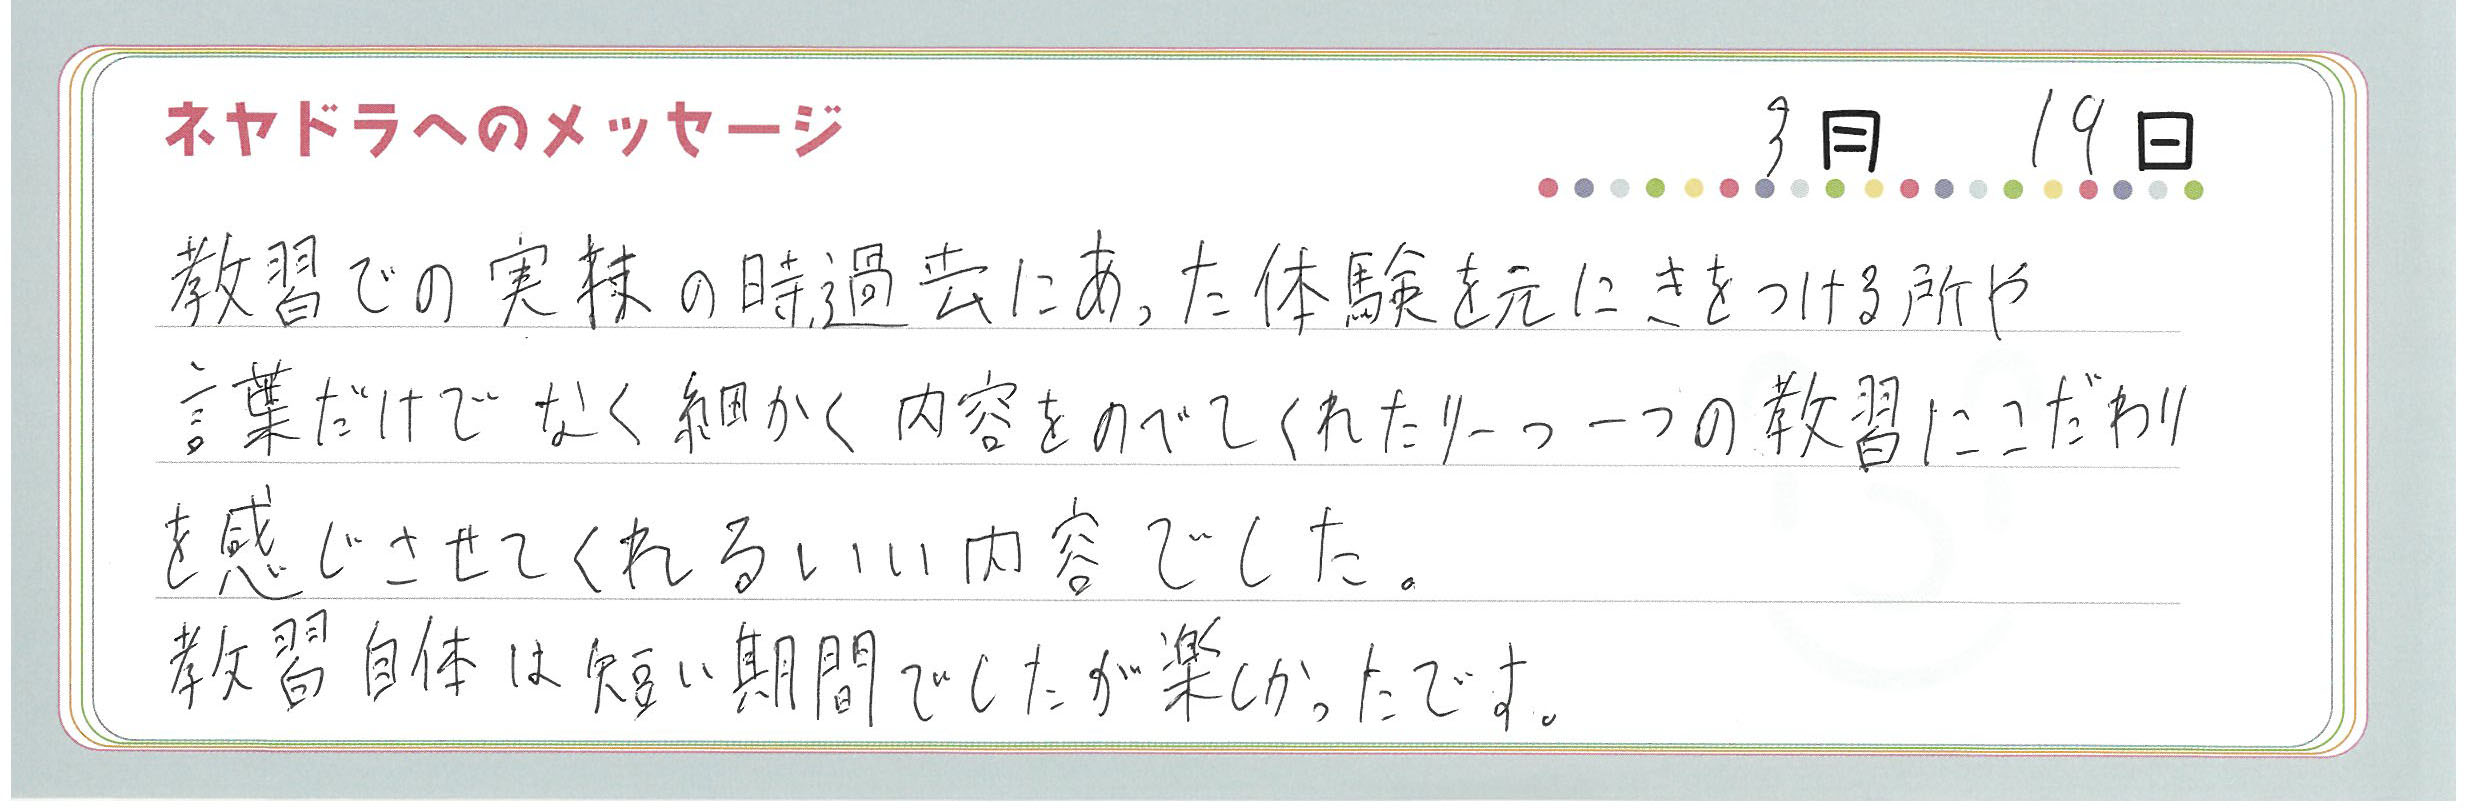 ネヤドラへのメッセージ
3月 19日
教習での実棟の時過去にあった体験を元にきをつける所や
言葉だけでなく細かく内容をのべてくれたり一つ一つの教習にこだわり
を感じさせてくれるいい内容でした。
教習自体は短い期間でしたが楽しかったです。